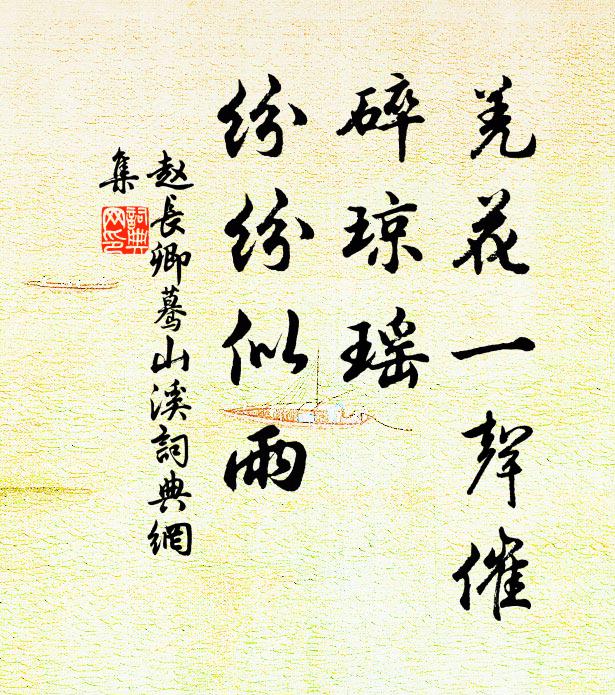 羌花一聲催
碎琼瑶
纷纷似雨
赵長卿驀山溪詞典網
集
詞典网印